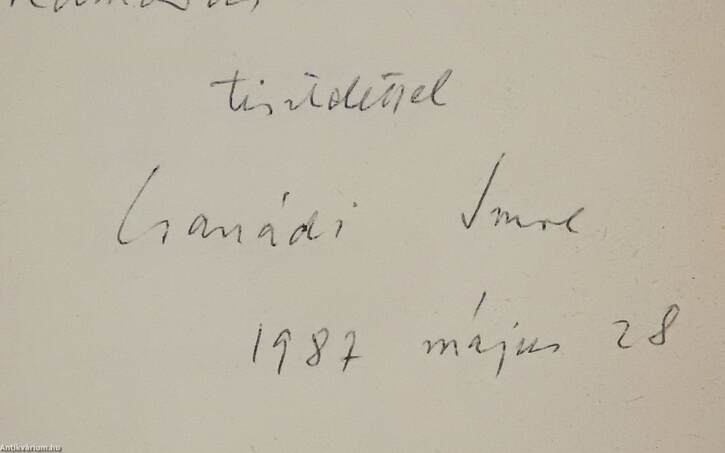 tisztelettel
Csanádi Imre
1987 május 28
Antikvárium.hu